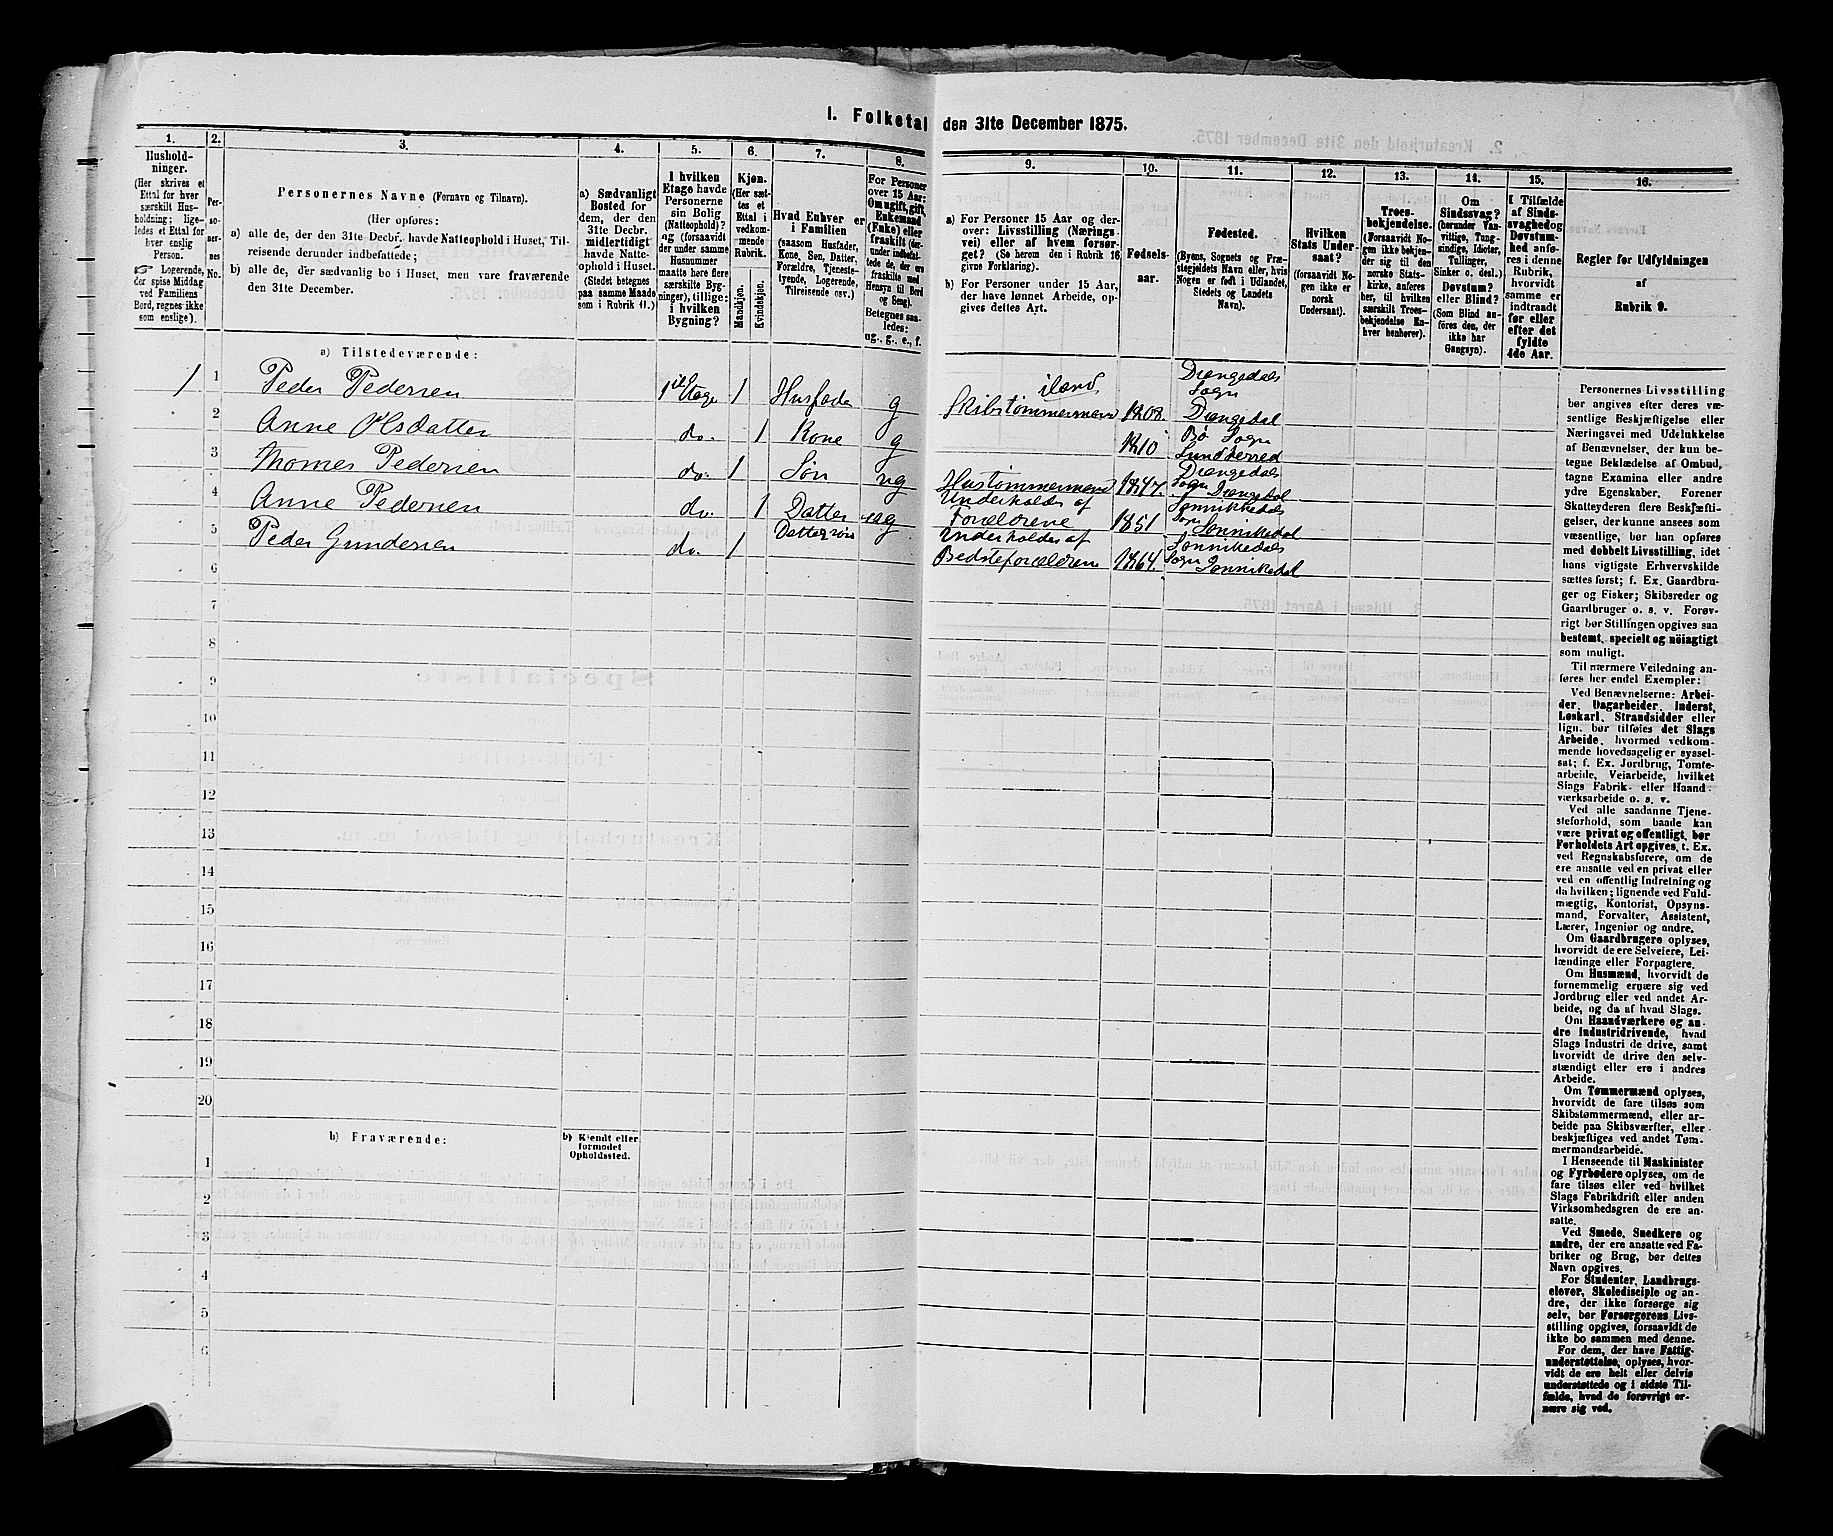 I. Folketal den 31te December 1875.
1. 2. 3. 4. 5. 6. 7. 8. 9. 10. 11. 12. 13. 14. 15. 16.
Hushold-
ninger.
(Her skrives et
Ettal for hver
særskilt Hus-
holdning; lige-
ledes et Ettal for
hver enslig
Person.
☞ Logerende,
der spise Middag
ved Familiens
Bord, regnes ikke
som enslige).
Per-
so-
ner-
nes
No.
Personernes Navne (Fornavn og Tilnavn).
(Her opføres:
a) alle de, der den 31te Decbr. havde Natteophold i Huset, Til-
reisende derunder indbefattede;
b) alle de, der sædvanlig bo i Huset, men vare fraværende
den 31te December.
a) Sædvanligt
Bosted for
dem, der den
31te Decbr.
midlertidigt
havde Natte-
ophold i Huset.
(Stedet betegnes
paa samme Maade
som i Rubrik 11.)
I hvilken
Etage havde
Personerne
sin Bolig
(Natteophold)?
og (forsaavidt
der under samme
Husnummer
maatte høre flere
særskilte Byg-
ninger), tillige:
i hvilken
Bygning?
Kjøn.
(Her sæt-
tes et
Ettal i
vedkom-
mende
Rubrik.
Mandkjøn.
Kvindekjøn.
Hvad Enhver er
i Familien
(saasom Husfader,
Kone, Søn, Datter,
Forældre, Tjeneste-
tyende, Logerende,
Tilreisende osv.)
For Personer
over 15 Aar:
Om ugift, gift,
Enkemand
(Enke) eller
fraskilt (der-
under indbefat-
tede de, der ere
fraskilte med
Hensyn til Bord
og Seng).
Betegnes saa-
ledes:
ug., g., e., f.
a) For Personer 15 Aar og der-
over: Livsstilling (Nærings-
vei) eller af hvem forsør-
get? (Se herom den i Rubrik 16
givne Forklaring).
b) For Personer under 15 Aar,
der have lønnet Arbeide, op-
gives dettes Art.
Fødsels-
aar.
Fødested.
(Byens, Sognets og Præ-
stegjeldets Navn eller, hvis
Nogen er født i Udlandet,
Stedets og Landets
Navn).
Hvilken
Stats Under-
saat?
(forsaavidt No-
gen ikke er
norsk
Undersaat).
Troes-
bekjendelse.
(Forsaavidt No-
gen ikke bekjen-
der sig til den
norske Stats-
kirke, anføres
her, til hvilken
særskilt Troes-
bekjendelse En-
hver henhører).
Om
Sindssvag?
(herunder Van-
vittige, Tung-
sindige, Idioter,
Tullinger,
Sinker o. desl.)
Døvstum?
eller Blind?
(Som Blind an-
føres den, der
ikke har
Gangsyn).
I Tilfælde
af Sinds-
svaghed og
Døvstum-
hed anfø-
res i denne
Rubrik,
hvorvidt
samme er
indtraadt
før eller
efter det
fyldte
4de Aar.
Regler for Udfyldningen
af
Rubrik 9.
a) Tilstedeværende:
1 1 Peder Pedersen 1ste Etage 1 Husfader g Skibstømmermand iland 1808. Drangedals Sogn Drangedal
2 Anne Olsdatter do. 1 Kone g 1810 Bø Sogn Lundherred
3 Thomes Pedersen do. 1 Søn ug Hustømmermand 1847. Drangedals Sogn Drangedal
4 Anne Pedersen do. 1 Datter ug Underholdes af Forældrene 1851 Sannikedals Sogn Sannikedal
5 Peder Gundersen do. 1 Dattersøn Underholdes af Bedsteforældrene 1864. Sannikedals Sogn Sannikedal
6
7
8
9
10
11
12
13
14
15
16
17
18
19
20
b) Fraværende:
b) Kjendt eller
formodet
Opholdssted.
1
2
3
4
5
6
Personernes Livsstilling
bør angives efter deres væ-
sentlige Beskjæftigelse eller
Næringsvei med Udelukkelse
af Benævnelser, der kun be-
tegne Beklædelse af Ombud,
tagne Examina eller andre
ydre Egenskaber. Forener
Skatteyderen flere Beskjæfti-
gelser, der kunne ansees som
væsentlige, bør han opføres
med dobbelt Livsstilling, idet
hans vigtigste Erhvervskilde
sættes først; f. Ex. Gaardbru-
ger og Fisker; Skibsreder og
Gaardbruger o. s. v. Forøv-
rigt bør Stillingen opgives saa
bestemt, specielt og nöiagtigt
som muligt.
Til nærmere Veiledning an-
føres her endel Exempler:
Ved Benævnelserne: Arbei-
der, Dagarbeider, Inderst,
Løskarl, Strandsidder eller
lign. bør tilføies det Slags
Arbeide, hvormed vedkom-
mende hovedsagelig er syssel-
sat; f. Ex. Jordbrug, Tomte-
arbeide, Veiarbeide, hvilket
Slags Fabrik- eller Haand-
værksarbeide o. s. v.
Ved alle saadanne Tjene-
steforhold, som baade kan
være privat og offentligt, bør
Forholdets Art opgives, t. Ex.
ved Regnskabsførere, om de
ere ansatte ved en privat eller
ved en offentlig Indretning og
da hvilken; lignende ved Fuld-
mægtig, Kontorist, Opsyns-
mand, Forvalter, Assistent,
Lærer, Ingeniør og andre.
Om Gaardbrugere oplyses,
hvorvidt de ere Selveiere, Lei-
lændinge eller Forpagtere.
Om Husmænd, hvorvidt de
fornemmelig ernære sig ved
Jordbrug eller ved andet Ar-
beide, og da af hvad Slags.
Om Haandværkere og an-
dre Industridrivende, hvad
Slags Industri de drive, samt
hvorvidt de drive den selv-
stændigt eller ere i andres
Arbeide.
Om Tømmermænd oplyses,
hvorvidt de fare tilsøs som
Skibstømmermænd, eller ar-
beide paa Skibsværfter, eller
beskjæftiges ved andet Tøm-
mermandsarbeide.
I Henseende til Maskinister
og Fyrbødere oplyses, om de
fare tilsøs eller ved hvilket
Slags Fabrikdrift eller anden
Virksomhedsgren de ere an-
satte.
Ved Smede, Snedkere og
andre, der ere ansatte ved Fa-
briker og Brug, bør dettes
Navn opgives.
For Studenter, Landbrugs-
elever, Skoledisciple og an-
dre, der ikke forsørge sig
selv, bør Forsørgerens Livs-
stilling opgives, forsaavidt de
ikke bo sammen med denne.
For dem, der have Fattig-
understøttelse, oplyses, hvor-
vidt de ere helt eller delvis
understøttede og i sidste Til-
fælde, hvad de forøvrigt er-
nære sig ved.